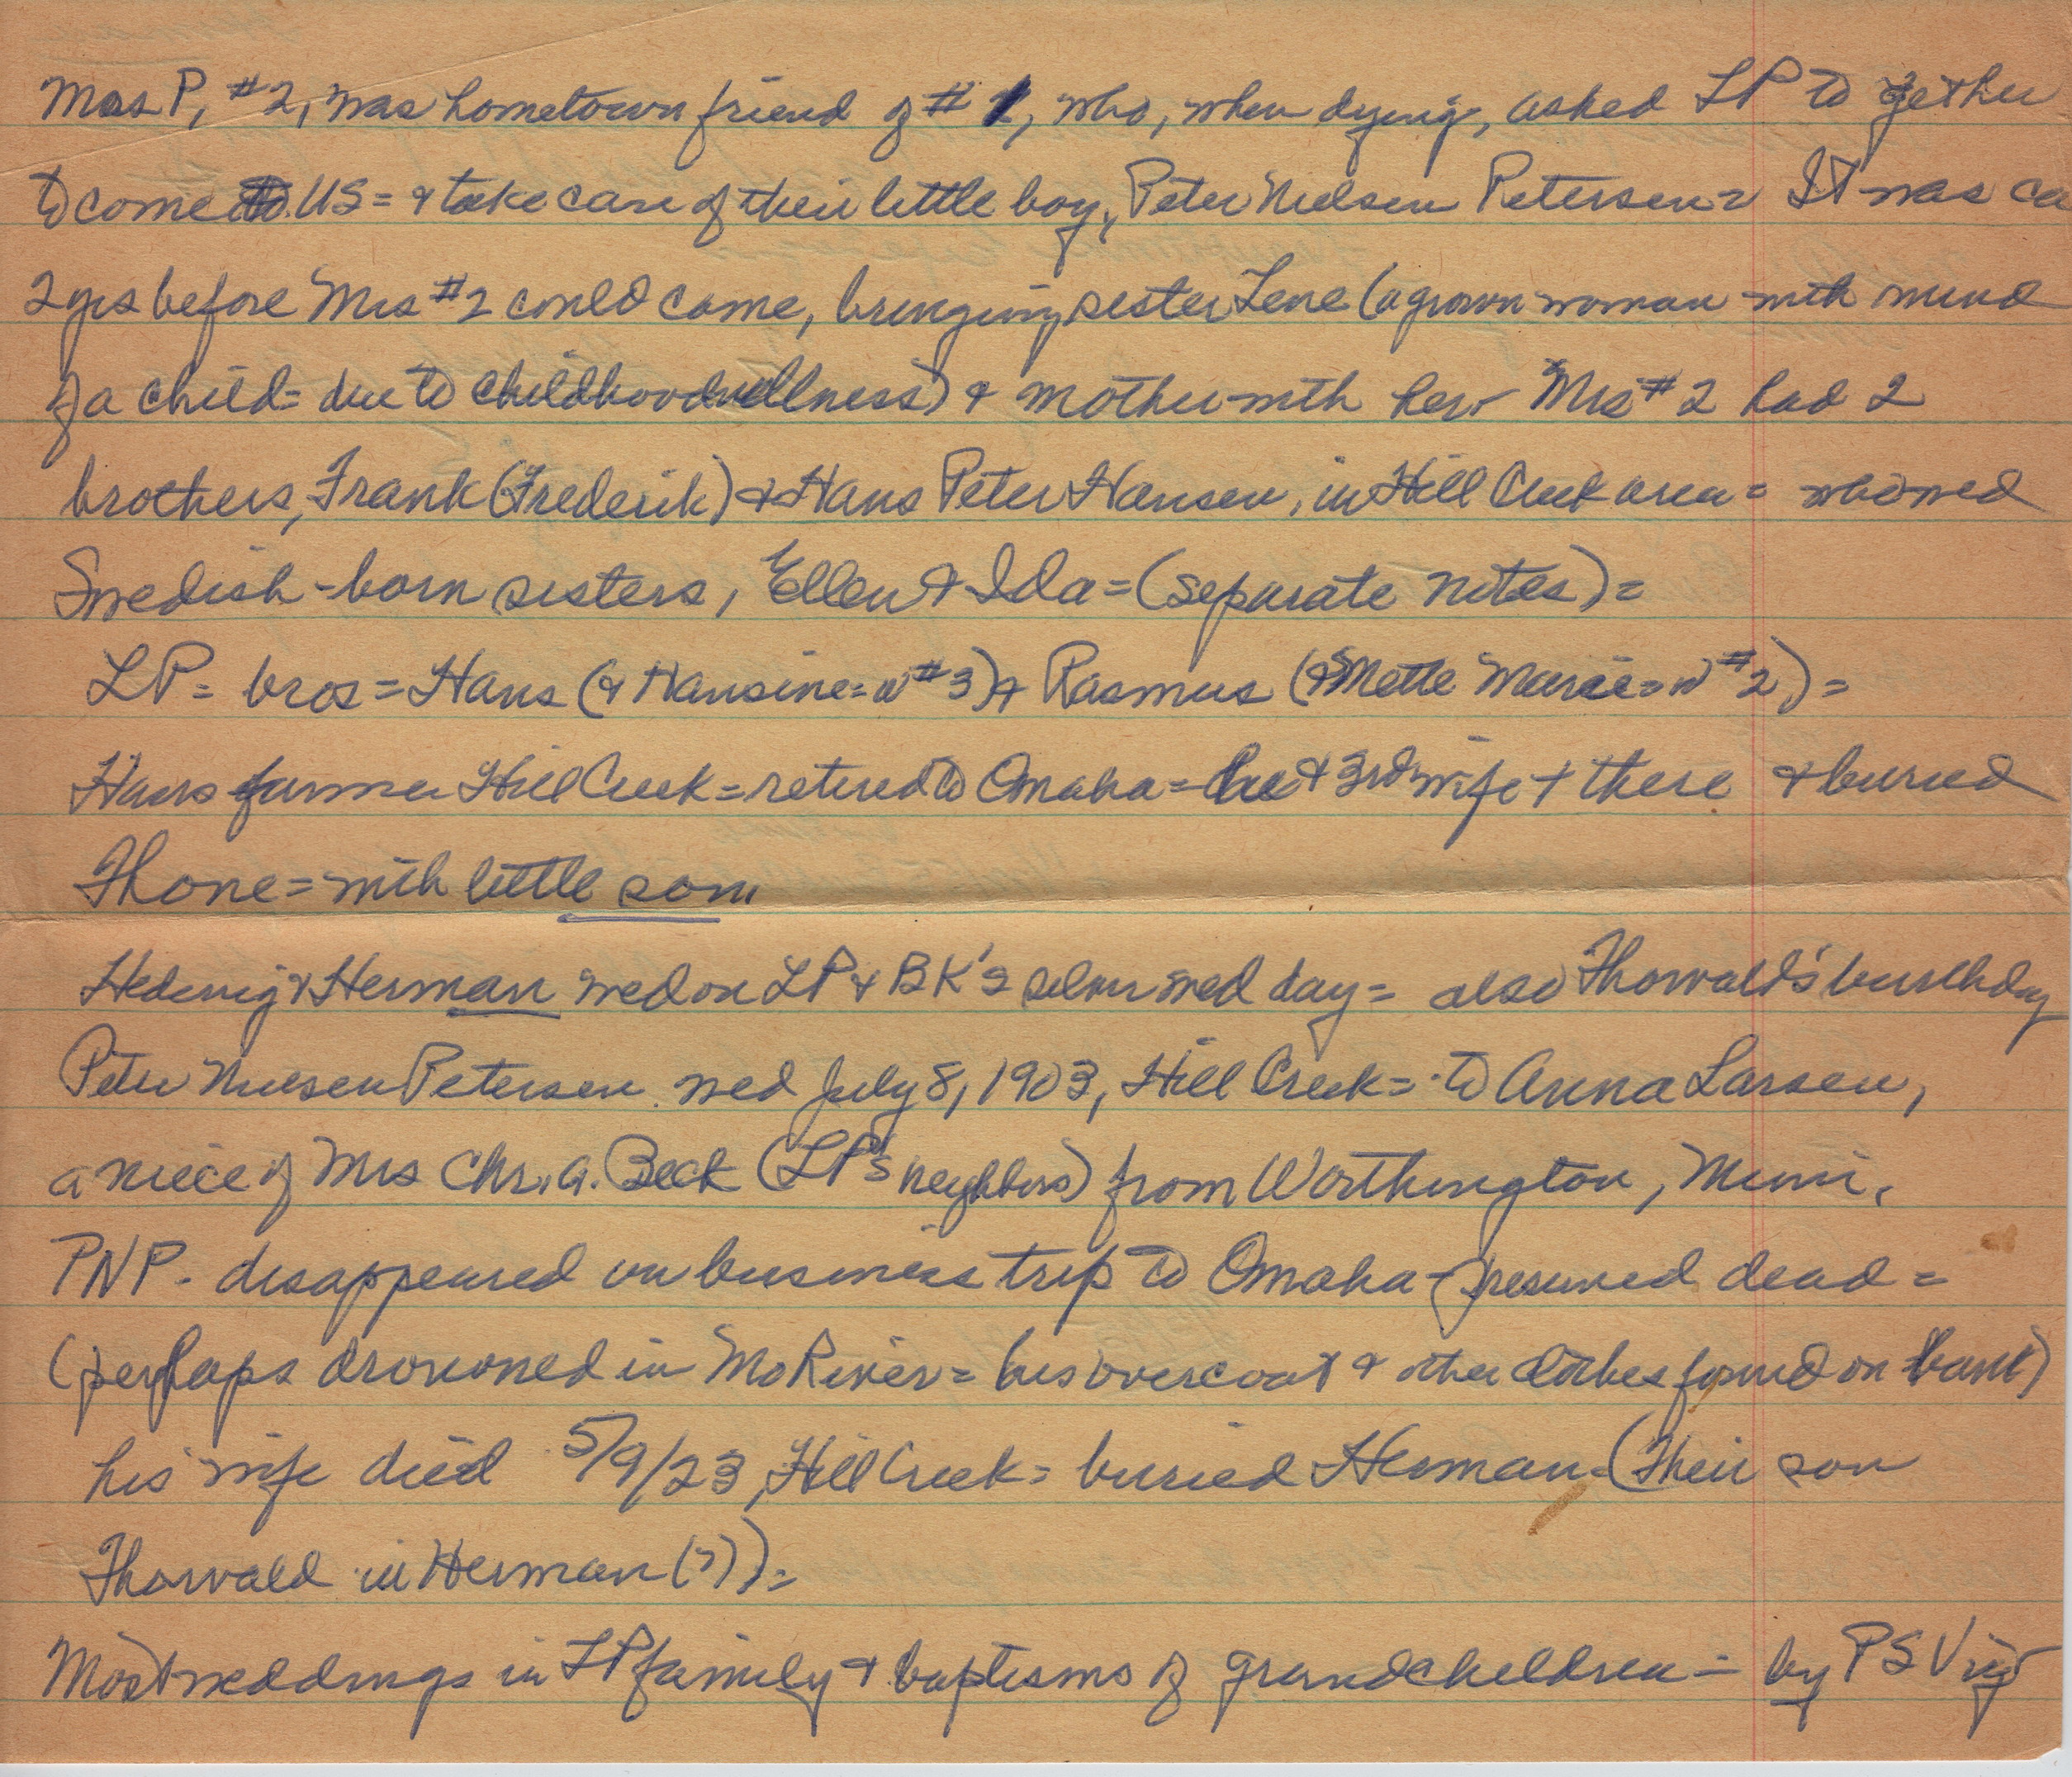 Mrs P, #2, was hometown friend of #1, who, when dying, asked LP to get her
to come to US = & take care of their little boy, Peter Nielsen Petersen = It was ca
2 yrs before Mrs #2 could come, bringing sister Lene (a grown woman with mind
of a child = due to childhood illness) & mother with her - Mrs #2 had 2
brothers, Frank (Frederik) & Hans Peter Hansen, in Hill Creek area = who wed
Swedish-born sisters, Ellen & Ida = (separate notes) =
LP = bros = Hans (& Hansine = w #3) & Rasmus (& Mette Marie = w #2) =
Hans farmer Hill Creek = retired to Omaha = he & 3rd wife + there & buried
= with little son.
Hedevig & Herman wed on LP & BK's silver wed day = also Thorvald's birthday
Peter Nielsen Petersen wed July 8, 1903, Hill Creek = to Anna Larsen,
a niece of Mrs Chr. A. Beck (LP's neighbors) from Worthington, Minn.
PNP - disappeared on business trip to Omaha - presumed dead =
(perhaps drowned in Mo River = his overcoat & other clothes found on bank)
his wife died 5/9/23, Hill Creek = buried Herman - (Their son
Thorvald in Herman (?)) =
Most weddings in LP family & baptisms of grandchildren = by PS Vig